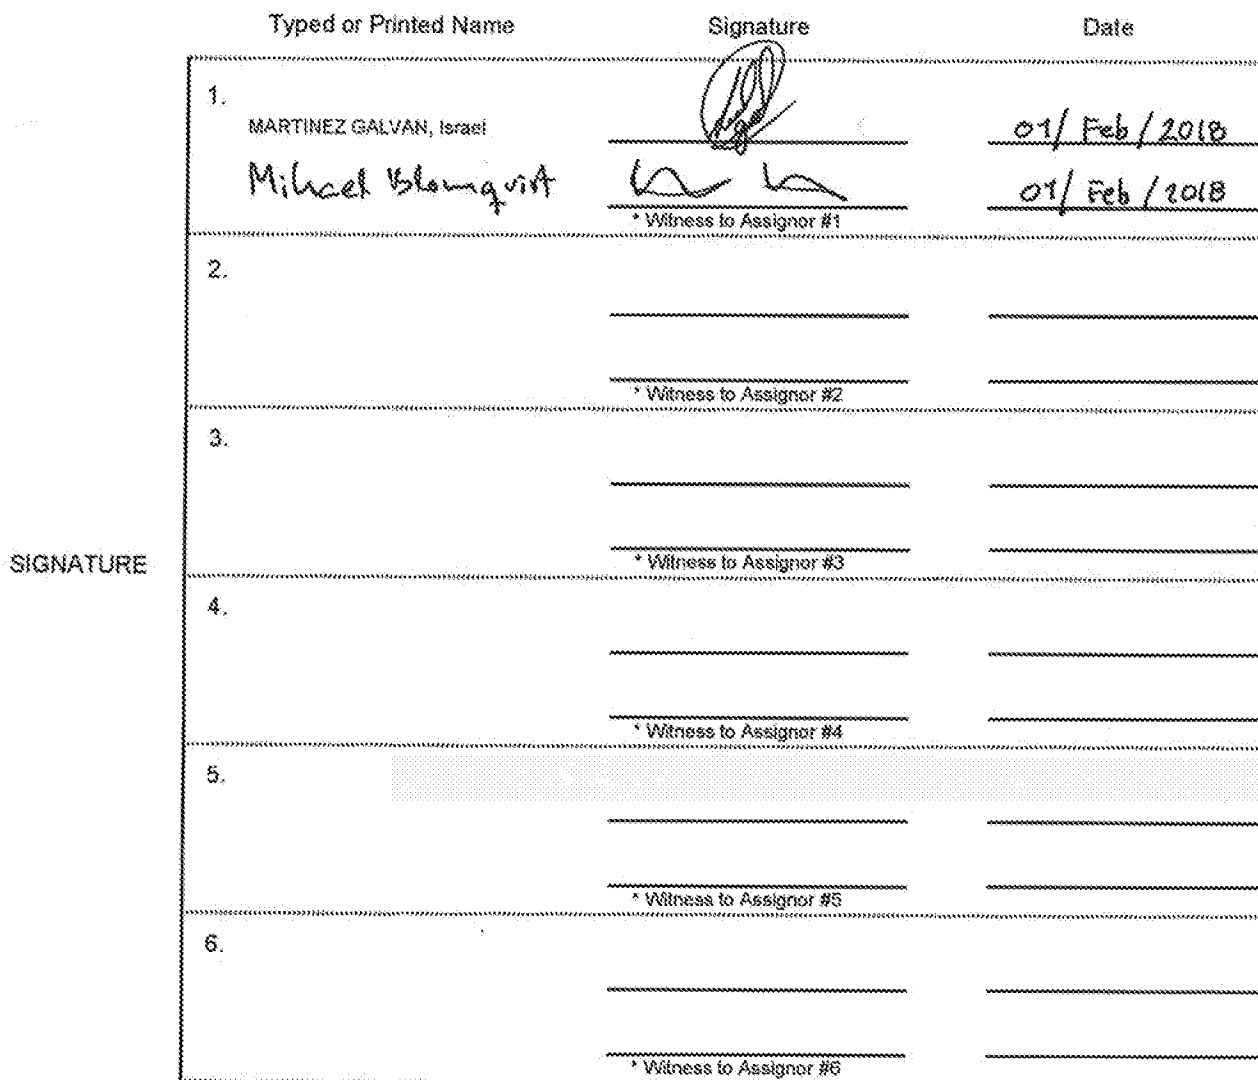 Typed or Printed Name Signature Date
1.
MARTINEZ GALVAN, Israel 01/ Feb / 2018
Mikael Blomqvist 01/ Feb / 2018
* Witness to Assignor #1
2.
* Witness to Assignor #2
3.
SIGNATURE
* Witness to Assignor #3
4.
* Witness to Assignor #4
5.
* Witness to Assignor #5
6.
* Witness to Assignor #6